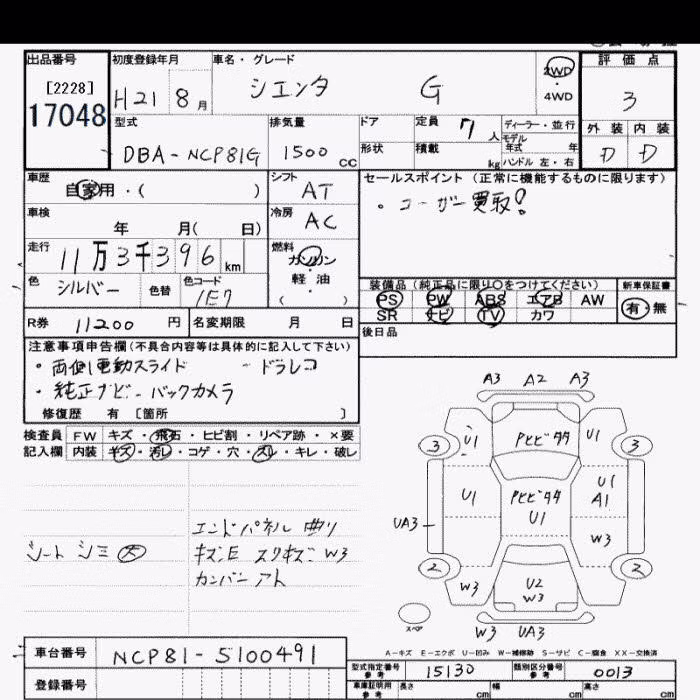 出品番号 初度登録年月 車名・グレード 2WD 評価点
[2228] H21 8月 シエンタ G ・ 3
17048 4WD
型式 排気量 ドア 定員 7人 ディーラー・並行 外装 内装
DBA-NCP81G 1500cc 形状 積載 kg モデル年式 年 D D
ハンドル 左・右
車歴 自家用・( ) シフト AT セールスポイント (正常に機能するものに限ります)
車検 年 月( 日) 冷房 AC ・ユーザー買取!
走行 11万3千396km 燃料 ガソリン
軽・油
( )
色 シルバー 色替 色コード 1E7
装備品(純正品に限り○をつけてください) 新車保証書
PS PW ABS エアB AW 有・無
SR ナビ TV カワ
R券 11200円 名変期限 月 日 後日品
注意事項申告欄(不具合内容等は具体的に記入して下さい)
・両側電動スライド -ドラレコ
・純正ナビ-バックカメラ
修復歴 有 [箇所 ]
検査員 FW キズ・飛石・ヒビ割・リペア跡・×要
記入欄 内装 キズ・汚レ・コゲ・穴・スレ・キレ・破レ
シート シミ 大
エンドパネル 曲リ
キズE スリキズ W3
カンバン アト
A3 A2 A3
3 U1 U1 3
U1 U1
U1 A1
UA3 W3
2 2
W3 U2 W3
W3
スペア W3 UA3
A-キズ E-エクボ U-凹み W-補修跡 S-サビ C-腐食 XX-交換済
車台番号 NCP81-5100491
型式指定番号 参考 15130 類別区分番号 参考 0013
登録番号 車庫証明用 参考 長さ cm 幅 cm 高さ cm